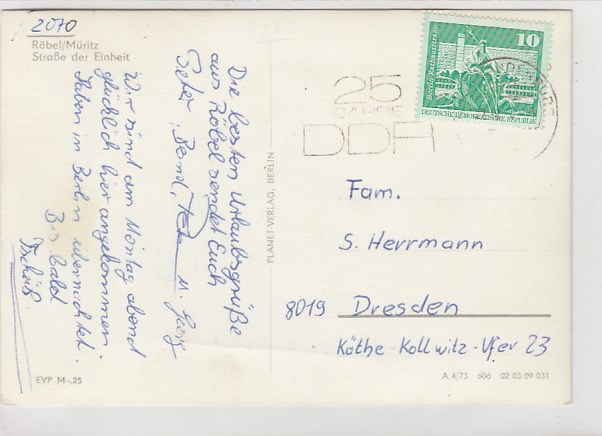 2070
Röbel/Müritz
Straße der Einheit
Die besten Urlaubsgrüße
aus Röbel sendet Euch
Peter, Bernd,
Wir sind am Montag abend
glücklich hier angekommen.
Haben in Berlin übernachtet.
Bis bald
Tschüß
EVP M -,25
PLANET-VERLAG, BERLIN
25
JAHRE
DDR
10
Berlin·Rathausstraße
DEUTSCHE DEMOKRATISCHE REPUBLIK
Fam.
S. Herrmann
8019 Dresden
Käthe-Kollwitz-Ufer 23
A 4/73 606 02 03 09 031